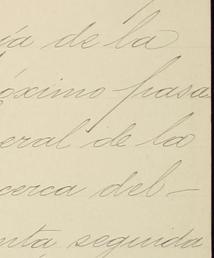 ía de la
óximo pasa
eral de la
cerca del-
nta seguida